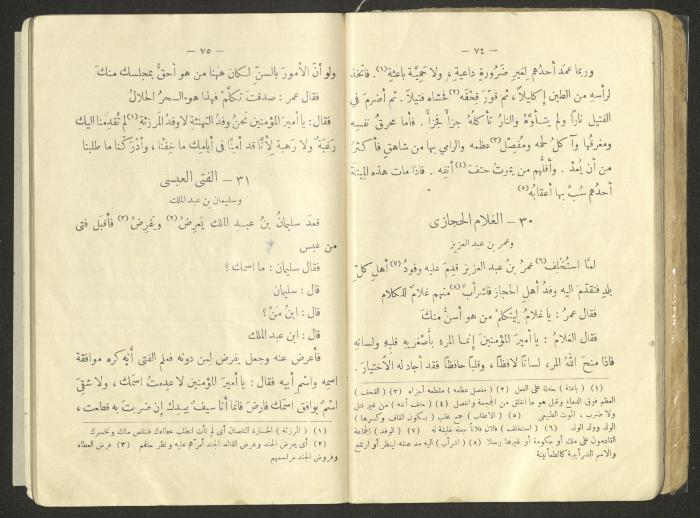 — ٧٤ —
وربما عمَد أحدُهم لغيرِ ضَرُورةٍ داعيةٍ ، ولا حَمِيَّةٍ باعثةٍ (١). فاتخذ
لرأسهِ من الطين إكليلاً ، ثم قوّر قِحْفَه (٣) فحشاه فتيلاً . ثم أضرمَ في
الفتيل نارًا ولم يتأوَّهْ والنارُ تأكلهُ جزأً فجزأً . فأما محرقُ نفسِه
ومغرقُها وآكلُ لحمه ومفصّلُ (٢) عظمه والرامي بها من شاهقٍ فأكثرُ
من أن يُعدَّ . وأقلُّهم من يموتُ حتفَ (٤) أنفِه . فاذا مات هذه المِيتةَ
أحدُهم سُبَّ بها أعقابُه (٥)
٣٠ — الغلام الحجازى
وعمر بن عبد العزيز
لمَّا استُخلِف (٦) عمرُ بنُ عبد العزيز قدِمَ عليه وفودُ (٧) أهلِ كلِّ
بلدٍ فتقدّمَ اليه وفدُ أهلِ الحجاز فاشرأبَّ (٨) منهم غلامٌ للكلام
فقال عمرُ : يا غلامُ ليتكلمْ من هو أسنُّ منكَ
فقال الغلامُ : يا أميرَ المؤمنين إنما المرء بأصْغريهِ قلبِه ولسانِه
فاذا منحَ اللهُ المرء لسانًا لافظًا ، وقلبًا حافظًا فقد أجاد له الاختيارَ .
(١) ( باعثة ) حاملة على الفعل (٢) ( مفصل عظمه ) مقطعه أجزاء (٣) ( القحف )
العظم فوق الدماغ وقيل هو ما انفلق من الجمجمة وانفصل (٤) ( حتف أنفه ) من غير قتل
ولا ضرب ، الموت الطبيعى (٥) ( الاعقاب ) جمع عقب ( بسكون القاف وكسرها )
الولد وولد الولد (٦) ( استخلف ) فلان فلاناً جعله خليفة له (٧) ( الوفد ) الجماعة
القادمون على ملك أو حكومة أو غيرها رسلا (٨) ( اشرأب ) اليه مد عنقه لينظر أو ارتفع
والاسم الشرأبيبة كالطمأنينة
— ٧٥ —
ولو أنّ الأمورَ بالسنّ لكان ههنا من هو أحقُّ بمجلسك منكَ
فقال عمر : صدقتَ تكلَّمْ فهذا هو السحرُ الحلالُ
فقال : يا أميرَ المؤمنين نحنُ وفدُ التهنئةِ لا وفدُ المَرزِئةِ (١) لم تُقدِمنا اليك
رَغبةٌ ولا رهبة لأنّا قد أمِنَّا في أيامِك ما خِفْنا ، وأدْرَكْنا ما طلبنا
٣١ — الفتى العبسى
وسليمان بن عبد الملك
قعدَ سليمانُ بنُ عبدِ الملك يَعرِضُ (٢) ويَفرِضُ (٣) فأقبَل فتى
من عبس
فقال سليمان : ما اسمك ؟
قال : سليمان
قال : ابنُ مَنْ ؟
قال : ابن عبد الملك
فأعرض عنه وجعل يفرض لمن دونه فعلم الفتى أنّه كره موافقةَ
اسمِه واسمِ أبيه فقال : يا أميرَ المؤمنين لا عدِمتُ اسمَك ، ولا شقِىَ
اسمٌ يوافق اسمَكَ فارِضْ فانما أنا سيفٌ بيدِك إن ضرَبتَ به قطعتَ ،
(١) ( المرزئة ) الخسارة النقصان أى لم نأت لنطلب عطاءك فننقص مالك ونخسرك
(٢) أى يعرض الجند وعرض القائد الجند أمرّهم عليه ونظر حالهم (٣) فرض العطاء
وفروض الجند مراسمهم